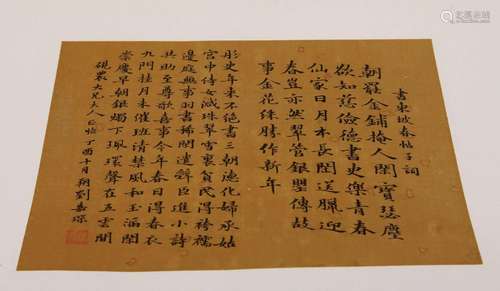 書東坡春帖子詞
朝罷金鋪掩人閒寶瑟塵
欲知慈儉德書史樂青春
仙家日月本長閒送臘迎
春豈亦然翠管銀罌傳故
事金花綵勝作新年
彤史年來不絕書三朝德化婦承姑
宮中侍女減珠翠雪裏貧民得袴襦
邊庭無事羽書稀閒遣辭臣進小詩
共助至尊歌喜事今年春日得春衣
九門挂月未催班清禁風和玉漏閒
崇慶早朝銀燭下珮環聲在五雲閒
硯農大兄大人 丁酉十月朔劉嘉琛